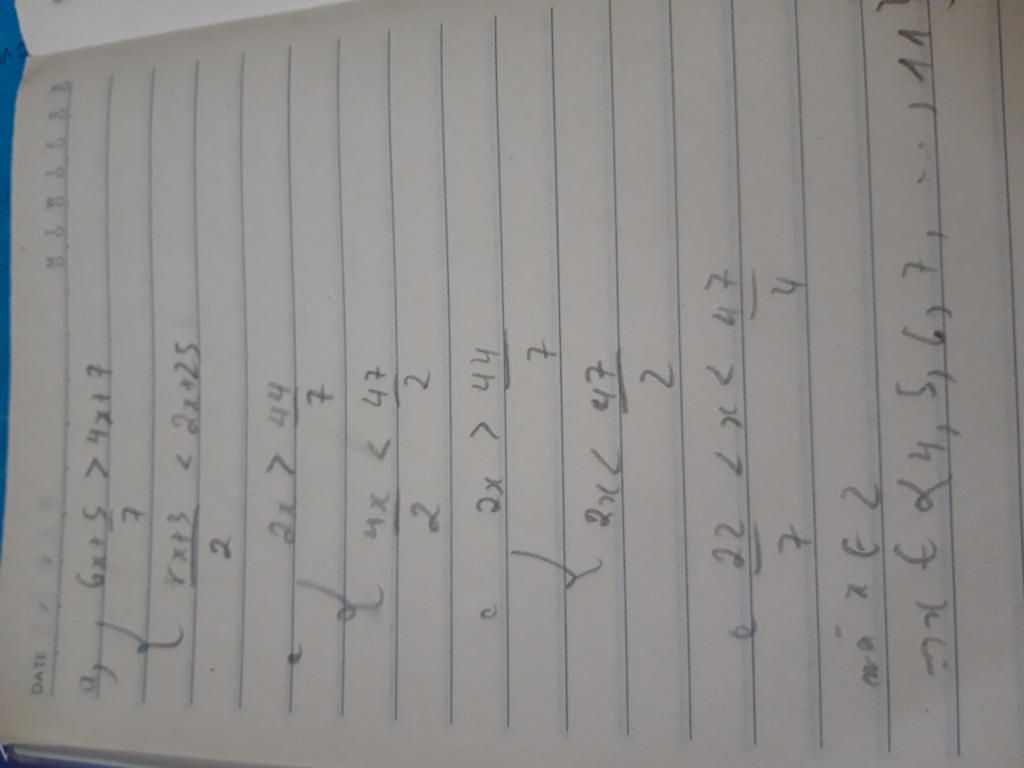 DATE
a, 6x+5/7 > 4x+7
8x+3/2 < 2x+25
2x > 44/7
4x/2 < 47/2
2x > 44/7
2x < 47/2
22/7 < x < 47/4
mà x ∈ Z
x ∈ {4, 5, 6, 7, ..., 11}